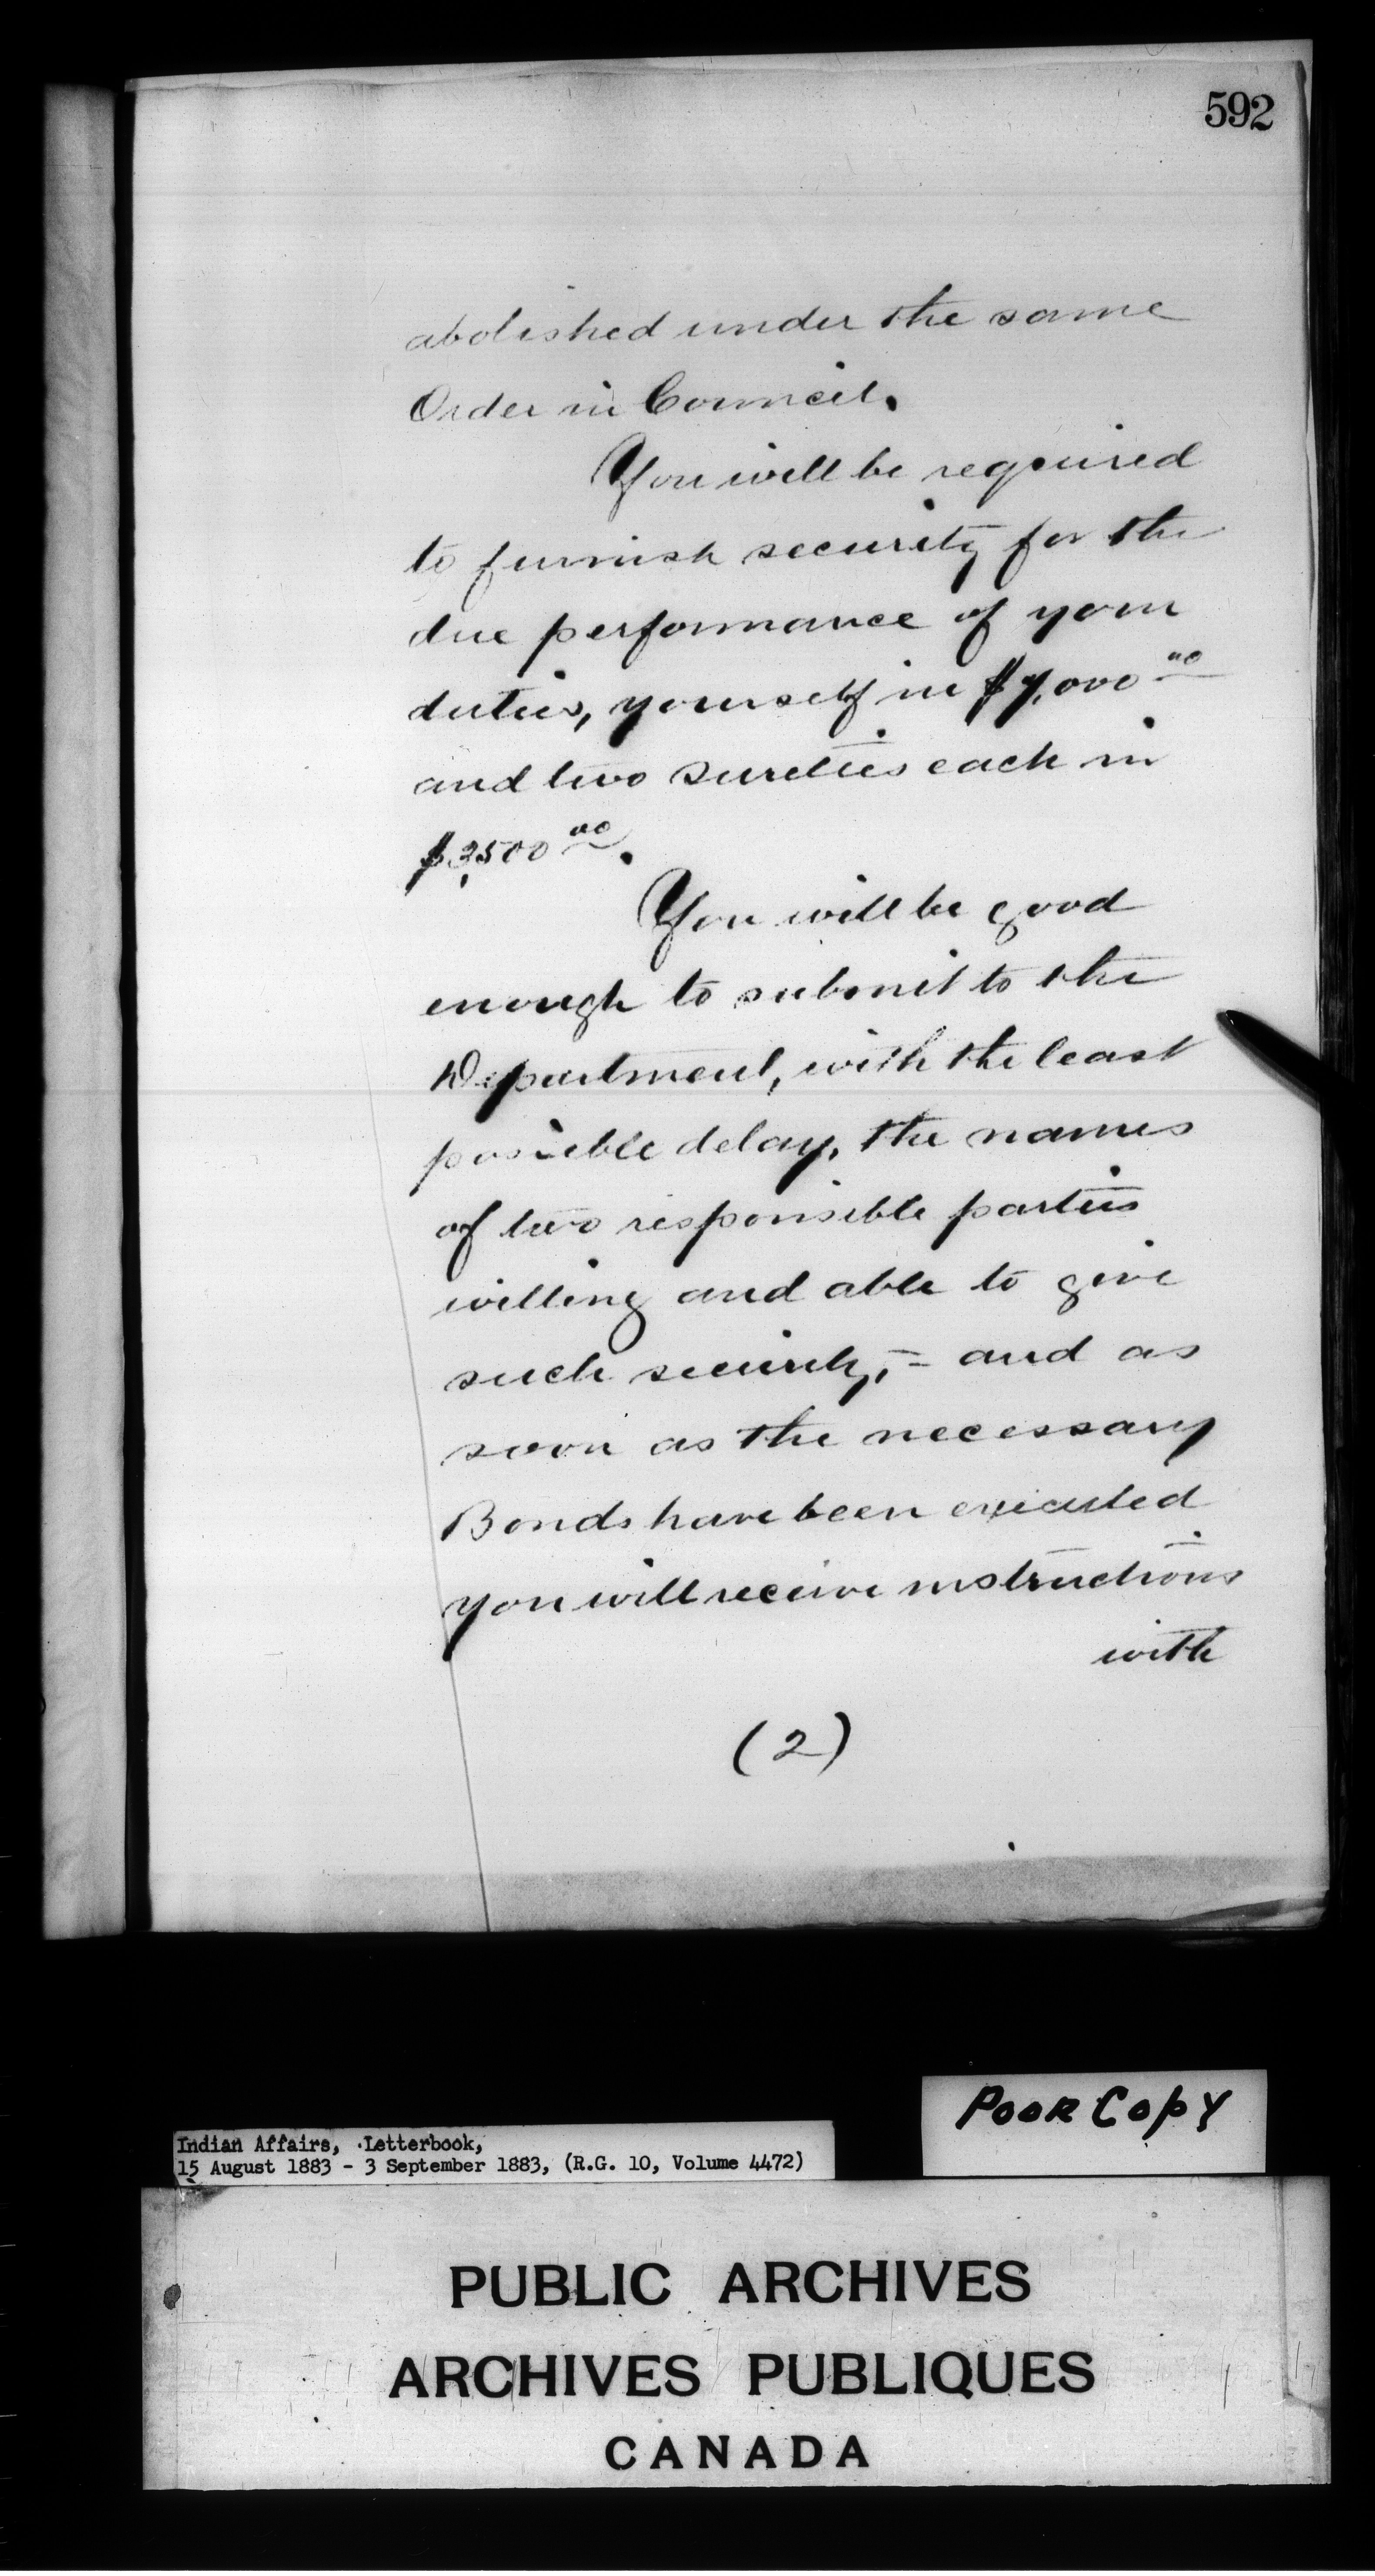 592
abolished under the same
Order in Council.
You will be required
to furnish security for the
due performance of your
duties, yourself in
and two sureties each in
You will be good
enough to submit to the
Department, with the least
possible delay, the names
of two responsible parties
willing and able to give
such security, = and as
soon as the necessary
Bonds have been executed
you will receive instructions
with
(2)
Poor Copy
Indian Affairs, Letterbook,
15 August 1883 - 3 September 1883, (R.G. 10, Volume 4472)
PUBLIC ARCHIVES
ARCHIVES PUBLIQUES
CANADA